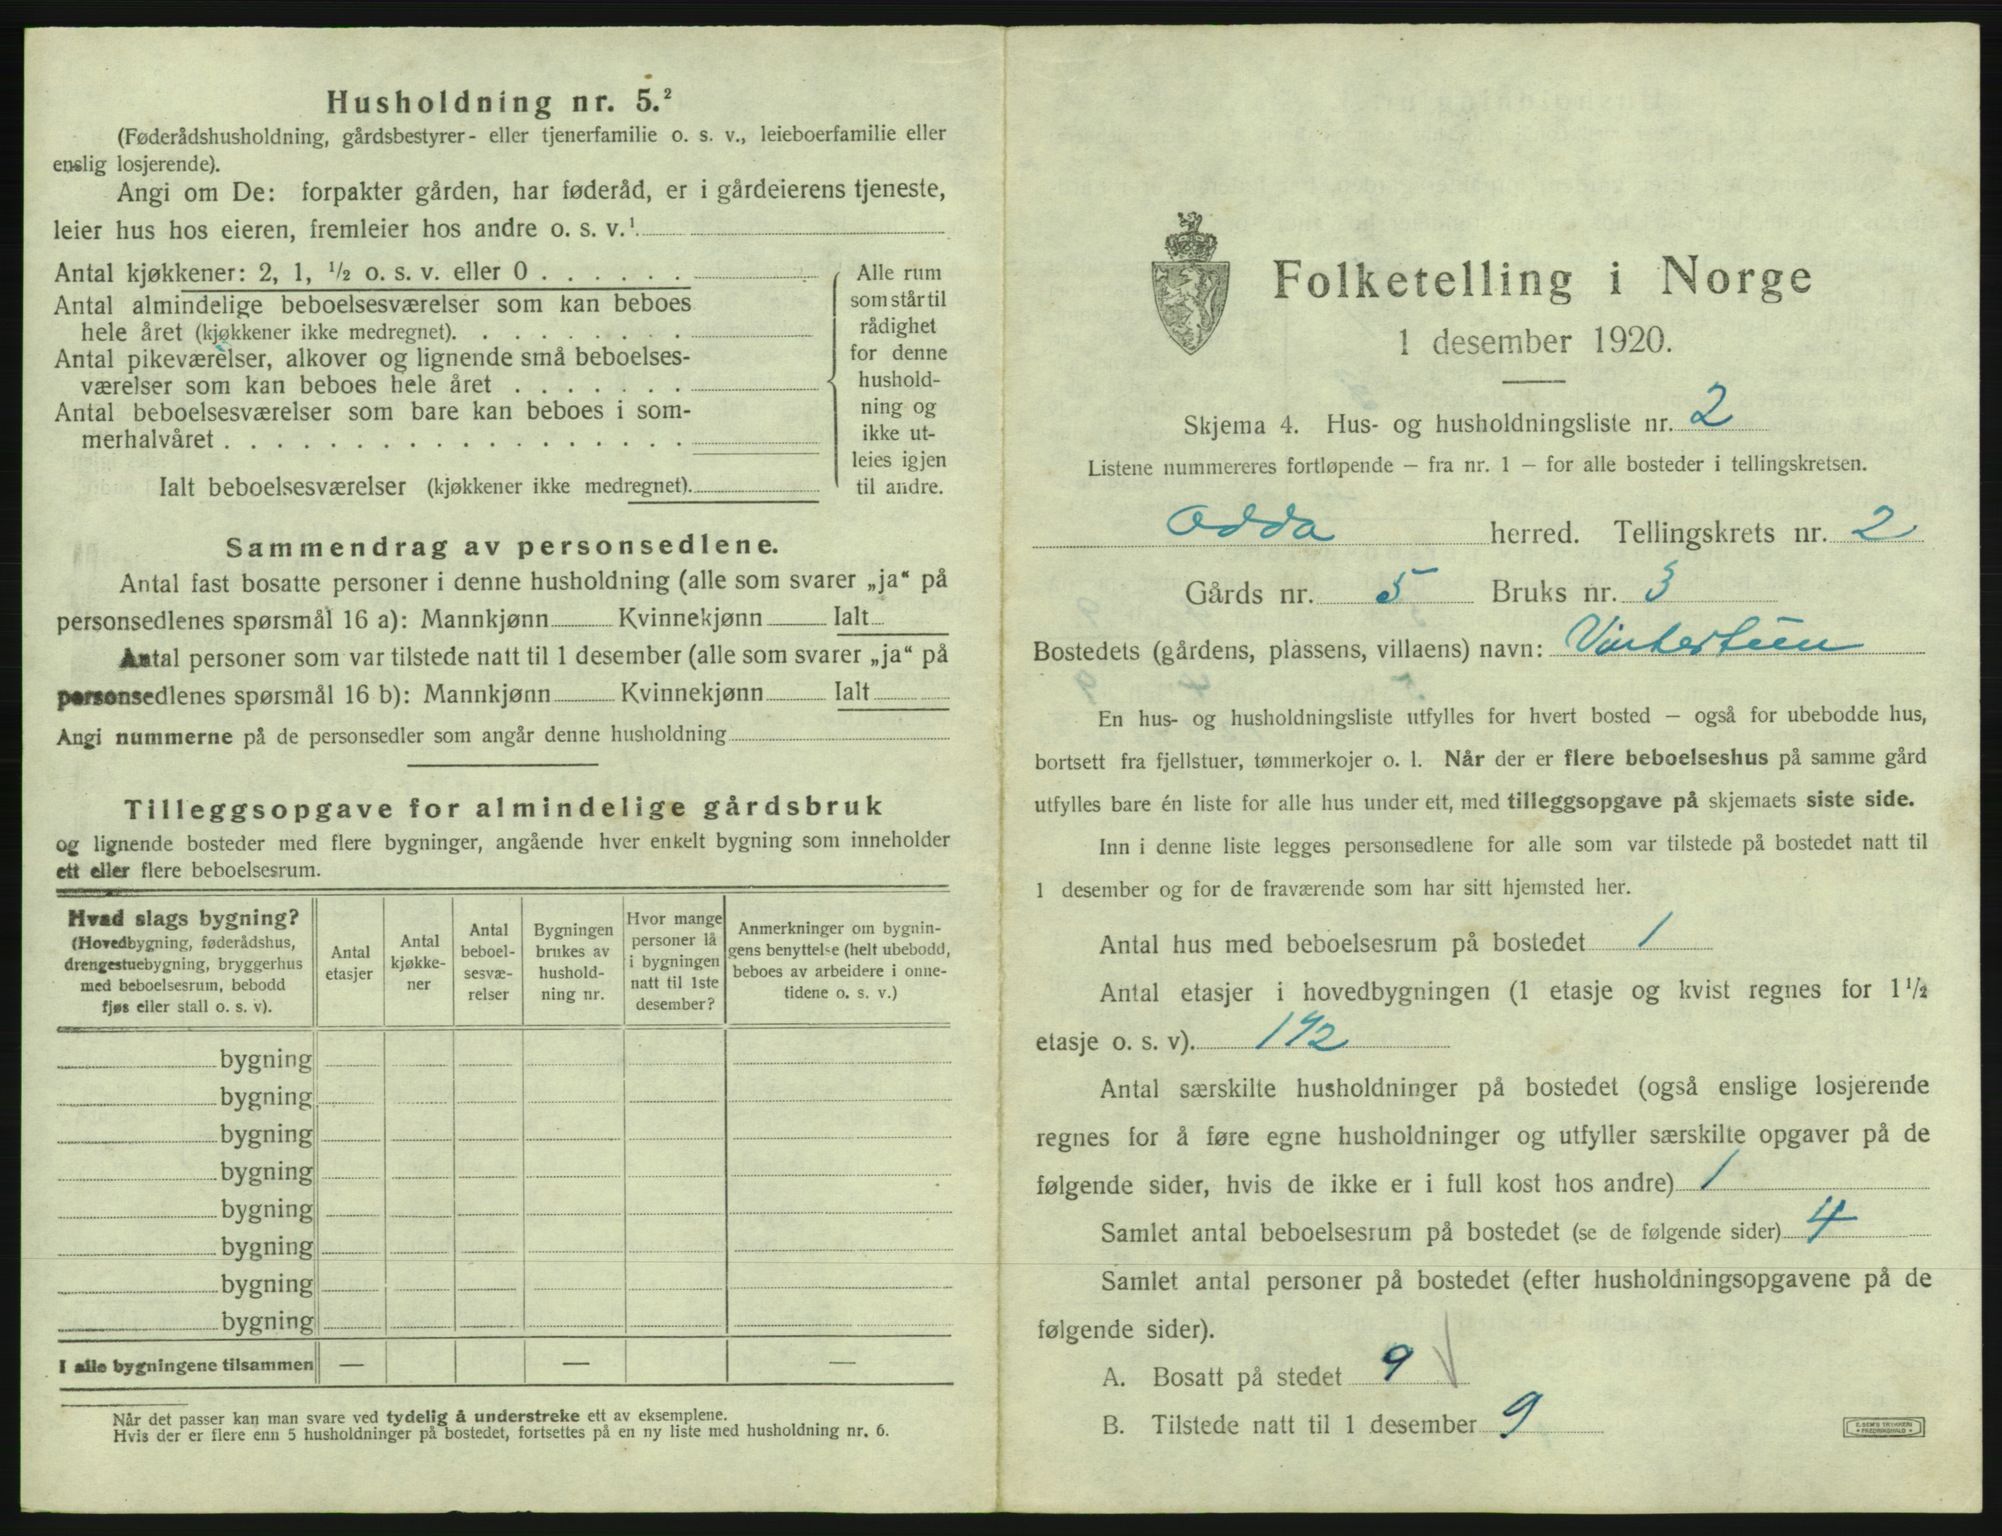 Husholdning nr. 5.²
(Føderådshusholdning, gårdsbestyrer- eller tjenerfamilie o. s. v., leieboerfamilie eller
enslig losjerende).
Angi om De: forpakter gården, har føderåd, er i gårdeierens tjeneste,
leier hus hos eieren, fremleier hos andre o. s. v.¹
Antal kjøkkener: 2, 1, ½ o. s. v. eller 0 . . . . . .
Antal almindelige beboelsesværelser som kan beboes
hele året (kjøkkener ikke medregnet). . . . . . . . .
Antal pikeværelser, alkover og lignende små beboelses-
værelser som kan beboes hele året . . . . . . .
Antal beboelsesværelser som bare kan beboes i som-
merhalvåret . . . . . . . . . . . . . . . . . .
Ialt beboelsesværelser (kjøkkener ikke medregnet).
Alle rum
som står til
rådighet
for denne
hushold-
ning og
ikke ut-
leies igjen
til andre.
Sammendrag av personsedlene.
Antal fast bosatte personer i denne husholdning (alle som svarer „ja“ på
personsedlenes spørsmål 16 a): Mannkjønn Kvinnekjønn Ialt
Antal personer som var tilstede natt til 1 desember (alle som svarer „ja“ på
personsedlenes spørsmål 16 b): Mannkjønn Kvinnekjønn Ialt
Angi nummerne på de personsedler som angår denne husholdning
Tilleggsopgave for almindelige gårdsbruk
og lignende bosteder med flere bygninger, angående hver enkelt bygning som inneholder
ett eller flere beboelsesrum.
Hvad slags bygning?
(Hovedbygning, føderådshus,
drengestuebygning, bryggerhus
med beboelsesrum, bebodd
fjøs eller stall o. s. v).
Antal
etasjer
Antal
kjøkke-
ner
Antal
beboel-
sesvæ-
relser
Bygningen
brukes av
hushold-
ning nr.
Hvor mange
personer lå
i bygningen
natt til 1ste
desember?
Anmerkninger om bygnin-
gens benyttelse (helt ubebodd,
beboes av arbeidere i onne-
tidene o. s. v.)
bygning
bygning
bygning
bygning
bygning
bygning
bygning
bygning
I alle bygningene tilsammen — — —
Når det passer kan man svare ved tydelig å understreke ett av eksemplene.
Hvis der er flere enn 5 husholdninger på bostedet, fortsettes på en ny liste med husholdning nr. 6.
Folketelling i Norge
1 desember 1920.
Skjema 4. Hus- og husholdningsliste nr. 2
Listene nummereres fortløpende – fra nr. 1 – for alle bosteder i tellingskretsen.
Odda herred. Tellingskrets nr. 2
Gårds nr. 5 Bruks nr. 3
Bostedets (gårdens, plassens, villaens) navn: Vintertun
En hus- og husholdningsliste utfylles for hvert bosted – også for ubebodde hus,
bortsett fra fjellstuer, tømmerkojer o. l. Når der er flere beboelseshus på samme gård
utfylles bare én liste for alle hus under ett, med tilleggsopgave på skjemaets siste side.
Inn i denne liste legges personsedlene for alle som var tilstede på bostedet natt til
1 desember og for de fraværende som har sitt hjemsted her.
Antal hus med beboelsesrum på bostedet 1
Antal etasjer i hovedbygningen (1 etasje og kvist regnes for 1½
etasje o. s. v). 1½
Antal særskilte husholdninger på bostedet (også enslige losjerende
regnes for å føre egne husholdninger og utfyller særskilte opgaver på de
følgende sider, hvis de ikke er i full kost hos andre) 1
Samlet antal beboelsesrum på bostedet (se de følgende sider) 4
Samlet antal personer på bostedet (efter husholdningsopgavene på de
følgende sider).
A. Bosatt på stedet 9
B. Tilstede natt til 1 desember 9